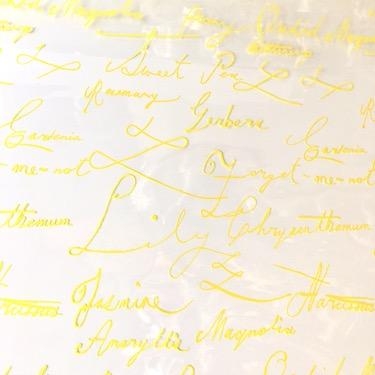 Orchid Magnolia
Sweet Pea
Rosemary
Gardenia Gerbera Gardenia
-me-not Forget-me-not
Lily
themum Chrysanthemum
Jasmine
Narcissus Narcissus
Amaryllis Magnolia
Orchid